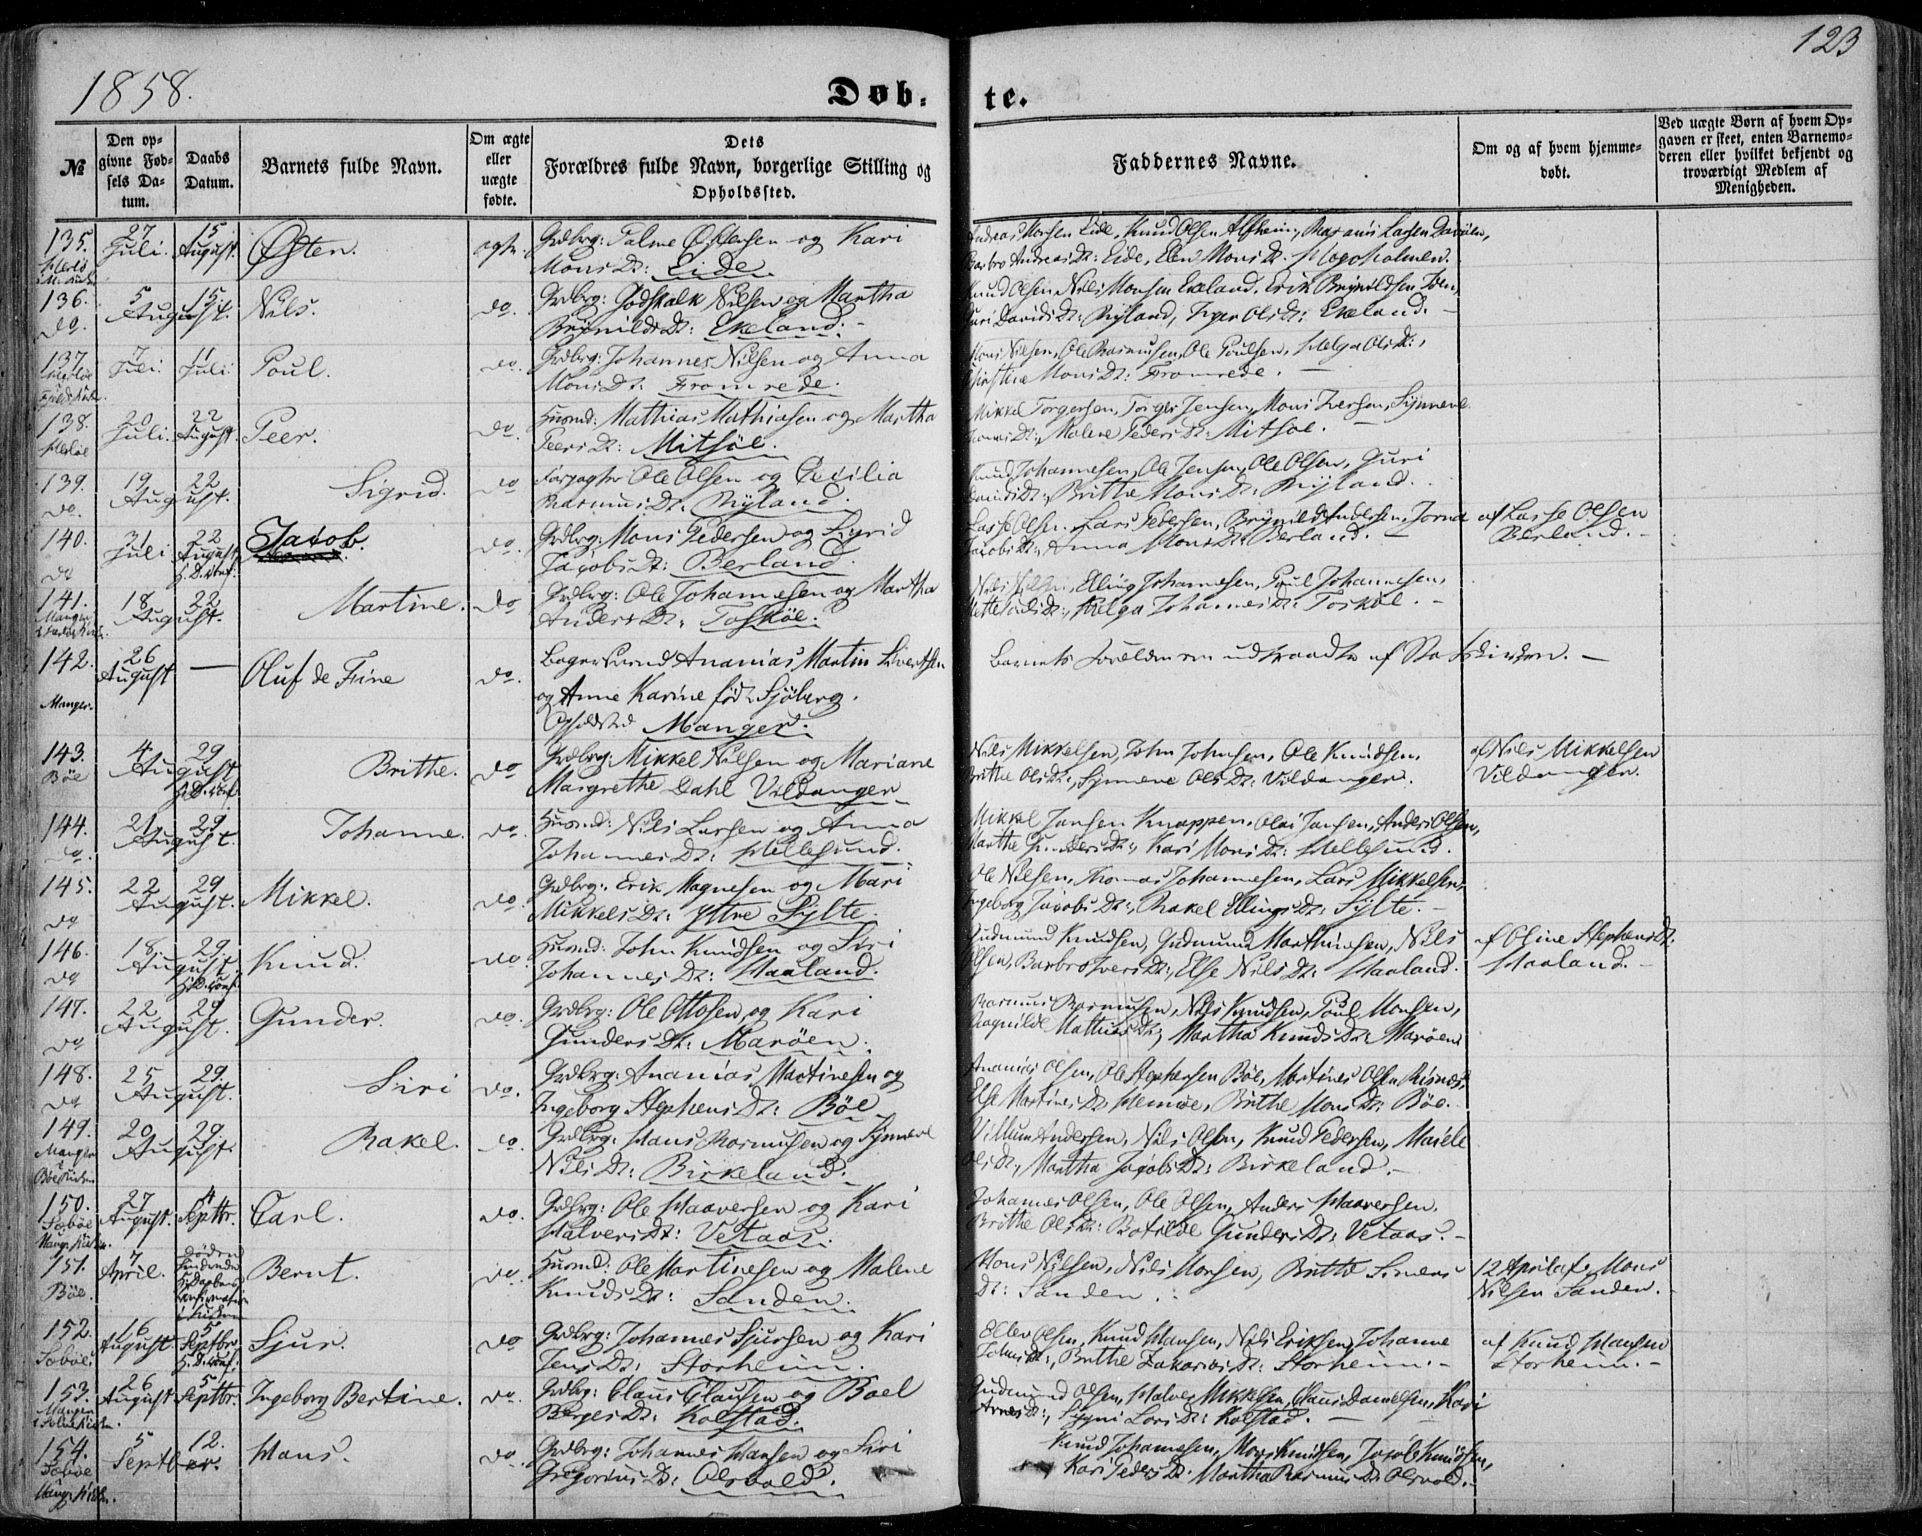 1858.
Døb-
te.
123
№
Den op-
givne Fød-
sels Da-
tum.
Daabs
Datum.
Barnets fulde Navn.
Om ægte
eller
uægte
fødte.
Dets
Forældres fulde Navn, borgerlige Stilling og
Opholdssted.
Faddernes Navne.
Om og af hvem hjemme-
døbt.
Ved uægte Børn af hvem Op-
gaven er skeet, enten Barnemo-
deren eller hvilket bekjendt og
troværdigt Medlem af
Menigheden.
135. 27 Juli. 15 August. Østen. ægte. Grdbrg: Salme Østensen og Kari
Mons Dt: Eide.
Andreas Monsen Eide, Knud Olsen Alfheim, Rasmus Larsen
Barbro Andreas Dt: Eide, Elen Mons Dt.
136. 5 15 August. Nils. do. Grdbrg: Godskalk Nilsen og Martha
do. Brynilds Dt: Ekeland.
Knud Olsen, Nils Monsen Ekeland, Erik Brynildsen
Guri Davids Dt: Ryland, Inger Ols Dt: Ekeland.
137. 7 Juli. 11 Juli. Poul. do. Grdbrg: Johannes Nilsen og Anna
Mons Dt: Fromrede.
Mons Nilsen, Ole Rasmusen, Ole Poulsen, Helga Ols Dt:,
Kirstine Mons Dt: Fromrede.
138. 20 Juli. 22 August. Peer. do. Husmd: Mathias Mathiasen og Martha
Herløe Peers Dt: Mitsøe.
Mikkel Torgersen, Torger Jensen, Mons Iversen, Synneve
Mons Dt:, Malene Peders Dt: Mitsøe.
139. 19 22 August. Sigrid. do Forpagter Ole Olsen og Cecilia
do. Rasmus Dt. Ryland.
Knud Johannesen, Ole Jensen, Ole Olsen, Guri
Davids Dt:, Brithe Mons Dt: Ryland.
140. 31 Juli 22 August Jacob. do. Grdbrg: Mons Pedersen og Sigrid
do H. D. konf: Jacobs Dt: Berland.
Lasse Olsen, Lars Pedersen, Brynild Andersen,
Jacobs Dt:, Anna Mons Dt: Berland.
af Lasse Olsen
Berland.
141. 18 22 August. Martine. do Grdbrg: Ole Johannesen og Martha
Manger Anders Dt: Toskøe.
Nils Nilsen, Elling Johannesen, Poul Johannesen,
Mette Nils Dt:, Helga Johannes Dt: Toskøe.
142. 26 August — Oluf de Fine do. Bogersvend Ananias Martin Sivertsen
og Anne Karine fød: Sjøberg.
Manger. Opholdsted Manger.
Barnets Forældre ere udtraadte af Statskirken.
143. 4 29 August Brithe. do Grdbrg: Mikkel Nilsen og Mariane
Bøe H. D. konf. Margrethe Dahl Vildanger
Nils Mikkelsen, John Johnsen, Ole Knudsen,
Brithe Ols Dt:, Synneve Ols Dt: Vildanger.
af Nils Mikkelsen
Vildanger.
144. 21 29 August. Johanne. do. Husmd: Nils Larsen og Anna
do. Johannes Dt: Hellesund.
Mikkel Jansen Knappen, Olai Jansen, Anders Olsen,
Marthe Gunders Dt:, Kari Mons Dt: Hellesund.
145. 22 29 August. Mikkel. do. Grdbrg: Erik Magnesen og Mari
do Mikkels Dt: Ystre Sylte.
Ole Nilsen, Thomas Johannesen, Lars Mikkelsen,
Ingeborg Jacobs Dt:, Rakel Ellings Dt: Sylte.
146. 18. 29. August Knud. do. Husmd: John Knudsen og Siri
do H. D. konf. Johannes Dt: Haaland.
Gudmund Knudsen, Gudmund Mathiasen, Nils
Olsen, Barbro Ivers Dt:, Else Nils Dt: Haaland.
af Oline Stephens Dt:
Haaland.
147. 22 29 August. Gunder. do. Grdbrg: Ole Ottosen og Kari
do Gunders Dt: Marøen.
Rasmus Rasmusen, Nils Knudsen, Poul Monsen,
Ragnilde Mathias Dt:, Martha Knuds Dt: Marøen
148. 25 29. August. Siri do. Grdbrg: Ananias Martinesen og
do Ingeborg Stephens Dt: Bøe
Ananias Olsen, Ole Stephensen Bøe, Martines Olsen Risnes,
Else Martines Dt, Brithe Mons Dt: Bøe.
149. 20 29. August. Rakel. do. Grdbrg: Hans Rasmusen og Synneve
Manger Nils Dt: Birkeland.
Villum Andersen, Nils Olsen, Knud Pedersen,
Ols Dt:, Martha Jacobs Dt: Birkeland.
150. 27 August. 4 Septbr. Carl. do. Grdbrg: Ole Haaversen og Kari
Sæbøe Halvers Dt: Vetaas.
Johannes Olsen, Ole Olsen, Anders Haaversen,
Brithe Ols Dt: Botilde Gunders Dt: Vetaas.
151. 7 April. Døden Bernt. do. Husmd: Ole Martinesen og Malene
Bøe. Knuds Dt: Sanden.
Mons Nilsen, Nils Monsen, Brithe
Dt: Sanden.
12 April af Mons
Nilsen Sanden.
152. 16 August. 5 Septbr. Sjur. do Grdbrg: Johannes Sjursen og Kari
Sæbøe H. D. konf: Jens Dt: Storheim
Ellev Olsen, Knud Hansen, Nils Eriksen, Johanne
Johns Dt:, Brithe Zakarias Dt: Storheim.
af Knud Hansen
Storheim.
153. 26 August 5 Septbr. Ingeborg Bertine. do. Grdbrg: Claus Clausen og Boel
Manger Børges Dt: Kolstad.
Gudmund Olsen, Halver Mikkelsen, Claus Danielsen, Kari
Arnes Dt:, Lars Dt: Kolstad.
154. 5 12. Septber. Hans. do. Grdbrg: Johannes Hansen og Siri
Sæbøe Gregorius Dt: Olsvold.
Knud Johannesen, Mons Knudsen, Jacob Knudsen,
Kari Peders Dt: Martha Rasmus Dt: Olsvold.